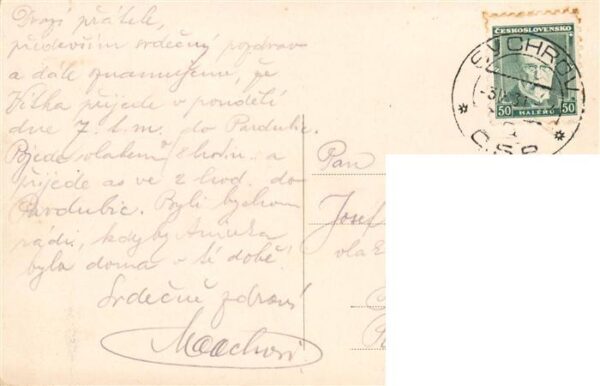 Drazí přátelé,
především srdečný pozdrav
a dále oznamujeme, že
Vítka přijede v pondělí
dne 7. t.m. do Pardubic.
Pojede vlakem v 8 hodin a
přijede as ve 2 hod. do
Pardubic. Byli bychom
rádi, kdyby Aninka
byla doma v té době!
Srdečně zdraví
Pan
Josef
ČESKOSLOVENSKO
50 HALÉŘŮ 50
SYCHROV
Č.S.R.